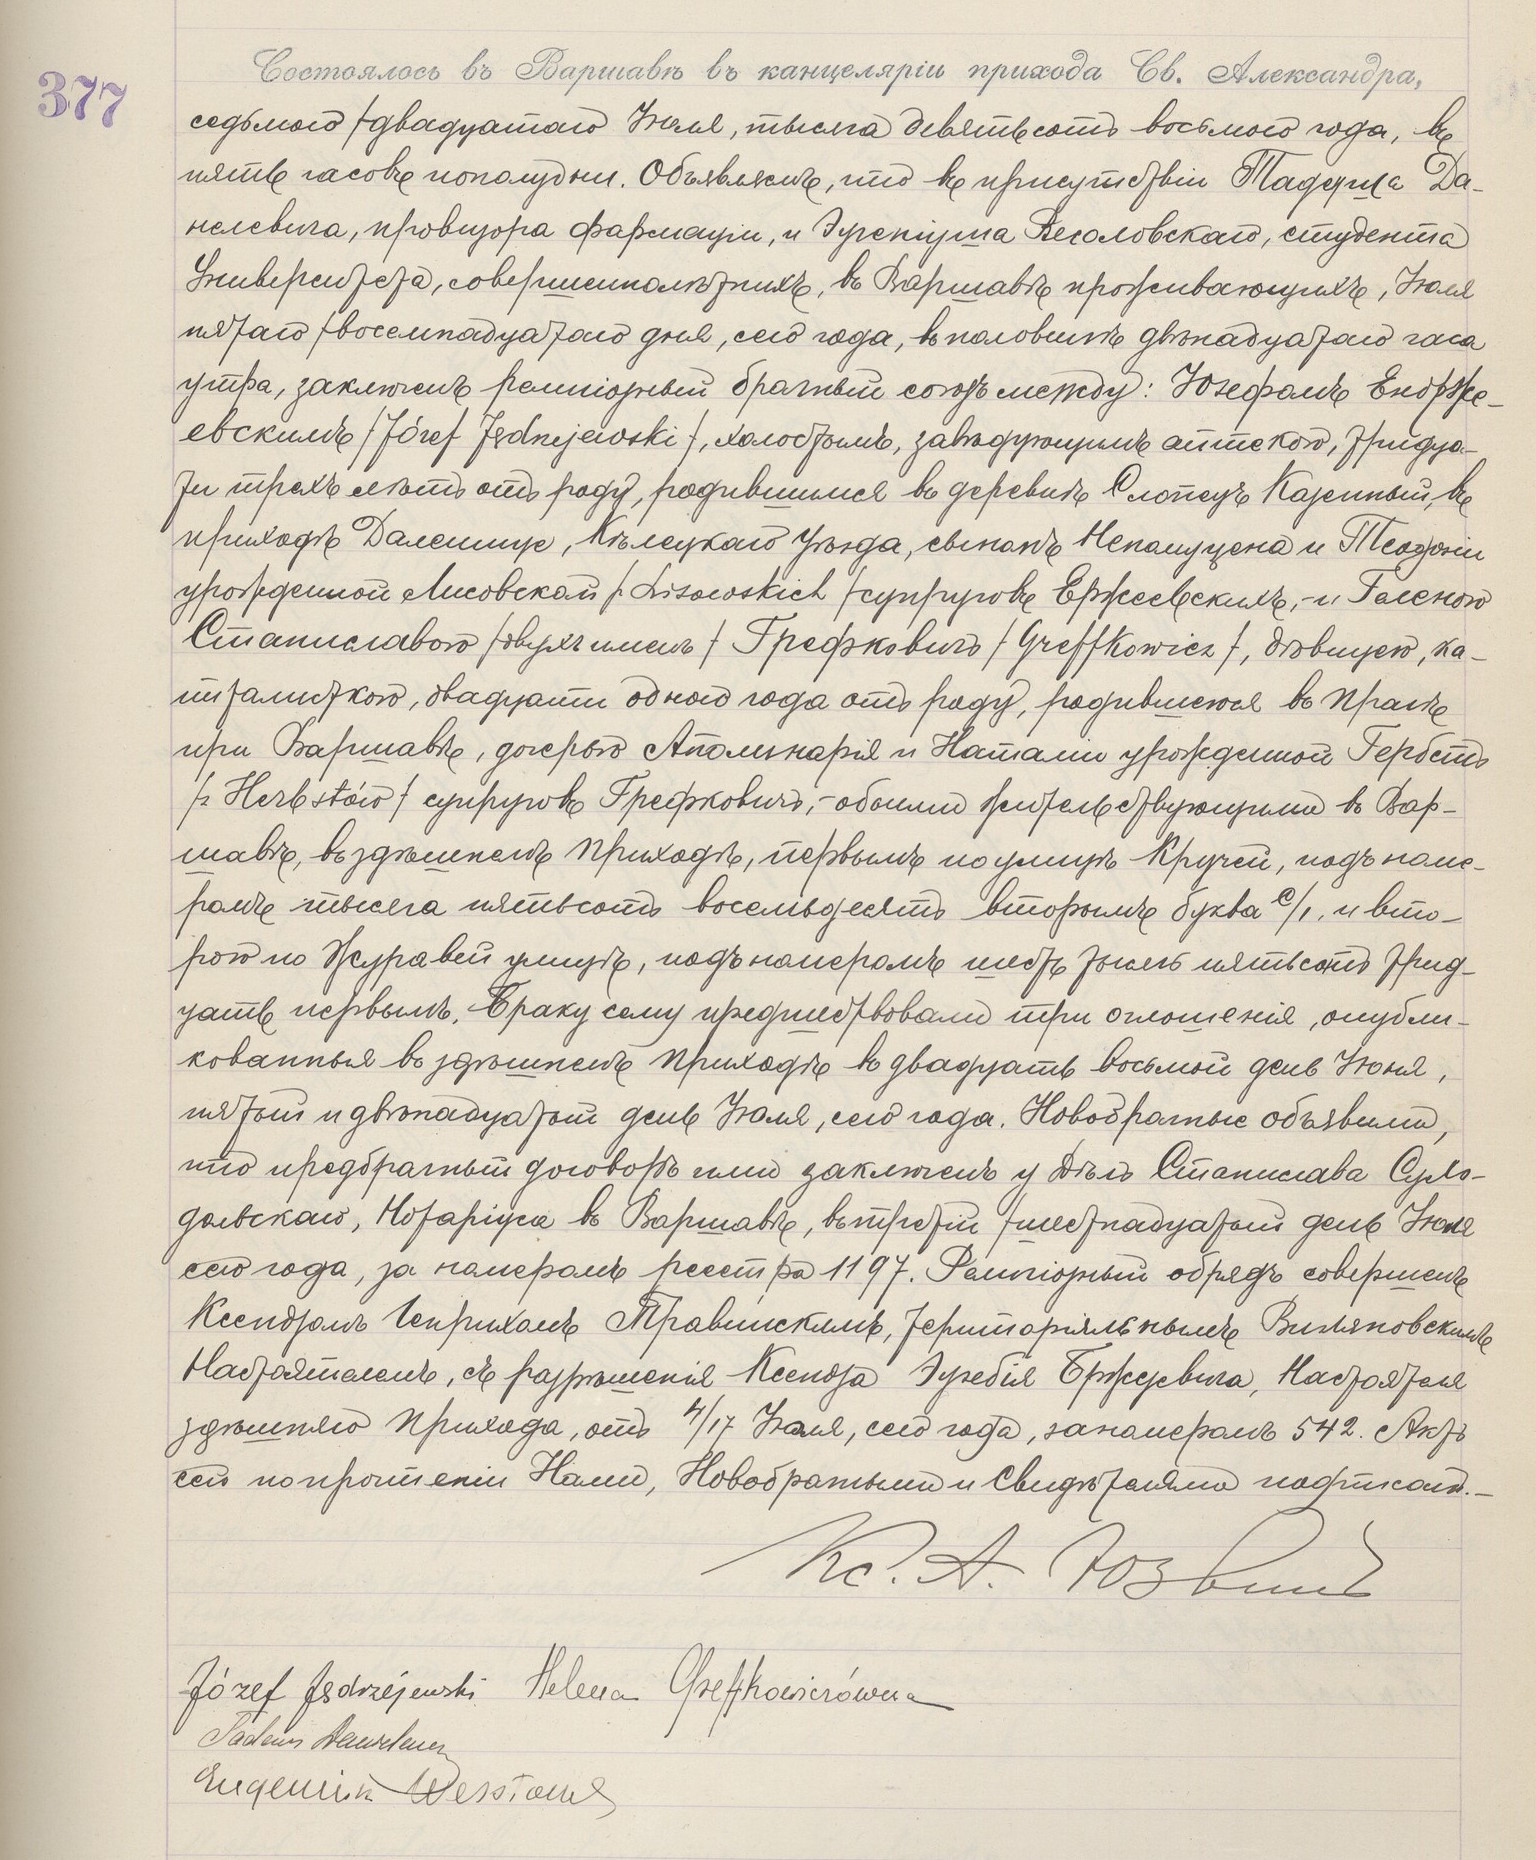 377
Состоялось въ Варшавѣ въ канцеляріи прихода Св. Александра,
седьмого /двадцатаго Іюля, тысяча девятьсотъ восьмого года, въ
пять часовъ пополудни. Объявляемъ, что въ присутствіи Тадеуша Да-
нелевича, провизора фармаціи, и Эугеніуша Весоловскаго, студента
Университета, совершеннолѣтнихъ, въ Варшавѣ проживающихъ, Іюля
пятаго /восемнадцатаго дня, сего года, въ половинѣ двѣнадцатаго часа
утра, заключенъ религіозный брачный союзъ между: Юзефомъ Ендрже-
евскимъ /Józef Jędrzejewski/, холостымъ, завѣдующимъ аптекою, тридца-
ти трехъ лѣтъ отъ роду, родившимся въ деревнѣ Слопецъ Казенный, въ
приходѣ Далешице, Кѣлецкаго Уѣзда, сыномъ Непомуцена и Теофіи
урожденной Лисовской /z Lisowskich/ супруговъ Ержеевскихъ,- и Геленою
Станиславою /двухъ именъ/ Грефковичъ /Greffkowicz/, дѣвицею, ка-
питалисткою, двадцати одного года отъ роду, родившеюся въ Прагѣ
при Варшавѣ, дочерью Аполинарія и Наталіи урожденной Гербстъ
/z Herbstów/ супруговъ Грефковичъ,- обоими жительствующими въ Вар-
шавѣ, въ здѣшнемъ приходѣ, первымъ по улицѣ Кручей, подъ номе-
ромъ тысяча пятьсотъ восемьдесятъ вторымъ буква с/1, и вто-
рою по Журавей улицѣ, подъ номеромъ шесть тысячъ пятьсотъ трид-
цать первымъ. Браку сему предшествовали три оглошенія, опубли-
кованныя въ здѣшнемъ приходѣ въ двадцать восьмой день Іюня,
пятый и двѣнадцатый день Іюля, сего года. Новобрачные объявили,
что предбрачный договоръ ими заключенъ у Станислава Сухо-
дольскаго, Нотаріуса въ Варшавѣ, въ третій /шестнадцатый день Іюля
сего года, за номеромъ реестра 1197. Религіозный обрядъ совершенъ
Ксендзомъ Генрихомъ Травинскимъ, территоріяльнымъ Виляновскимъ
Настоятелемъ, съ разрѣшенія Ксендза Эузебія Бржезевича, Настоятеля
здѣшняго прихода, отъ 4/17 Іюля, сего года, за номеромъ 542. Актъ
сей по прочтеніи Нами, Новобрачными и Свидѣтелями подписанъ.-
Кс. А.
Józef Jędrzejewski Helena Greffkowiczówna
Tadeusz
Eugeniusz